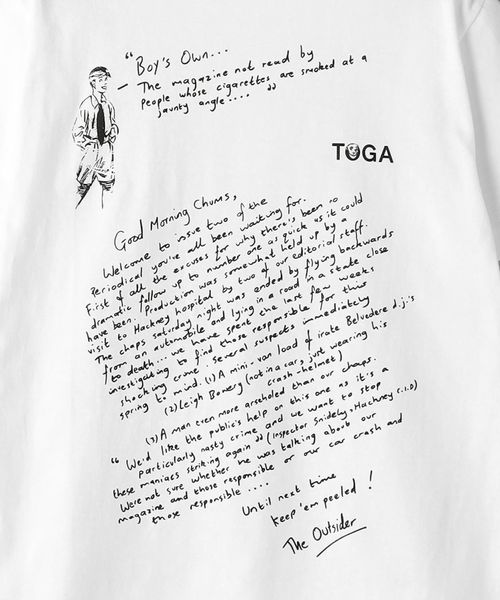 " Boy's Own...
The magazine not read by
People whose cigarettes are smoked at a
jaunty angle.... "
TOGA
Good Morning Chums,
Welcome to issue two of the
Periodical you've all been waiting for.
First of all the excuses for why there's been no
dramatic follow up to number one as quick as it could
have been. Production was somewhat held up by a
visit to Hackney hospital by two of our editorial staff.
The chaps saturday night was ended by flying backwards
from an automobile and lying in a road in a state close
to death... we have spent the last few weeks
investigating to find those responsible for this
shocking crime. Several suspects immediately
spring to mind. (1) A mini-van load of irate Belvedere d.j.'s
(2) Leigh Bowery (not in a car, just wearing his
crash-helmet)
(3) A man even more arseholed than our chaps.
" We'd like the public's help on this one as it's a
particularly nasty crime and we want to stop
these maniacs striking again " (Inspector Snidely, Hackney c.i.D)
Were not sure whether he was talking about our
magazine and those responsible or our car crash and
those responsible ....
Until next time
keep 'em peeled !
The Outsider